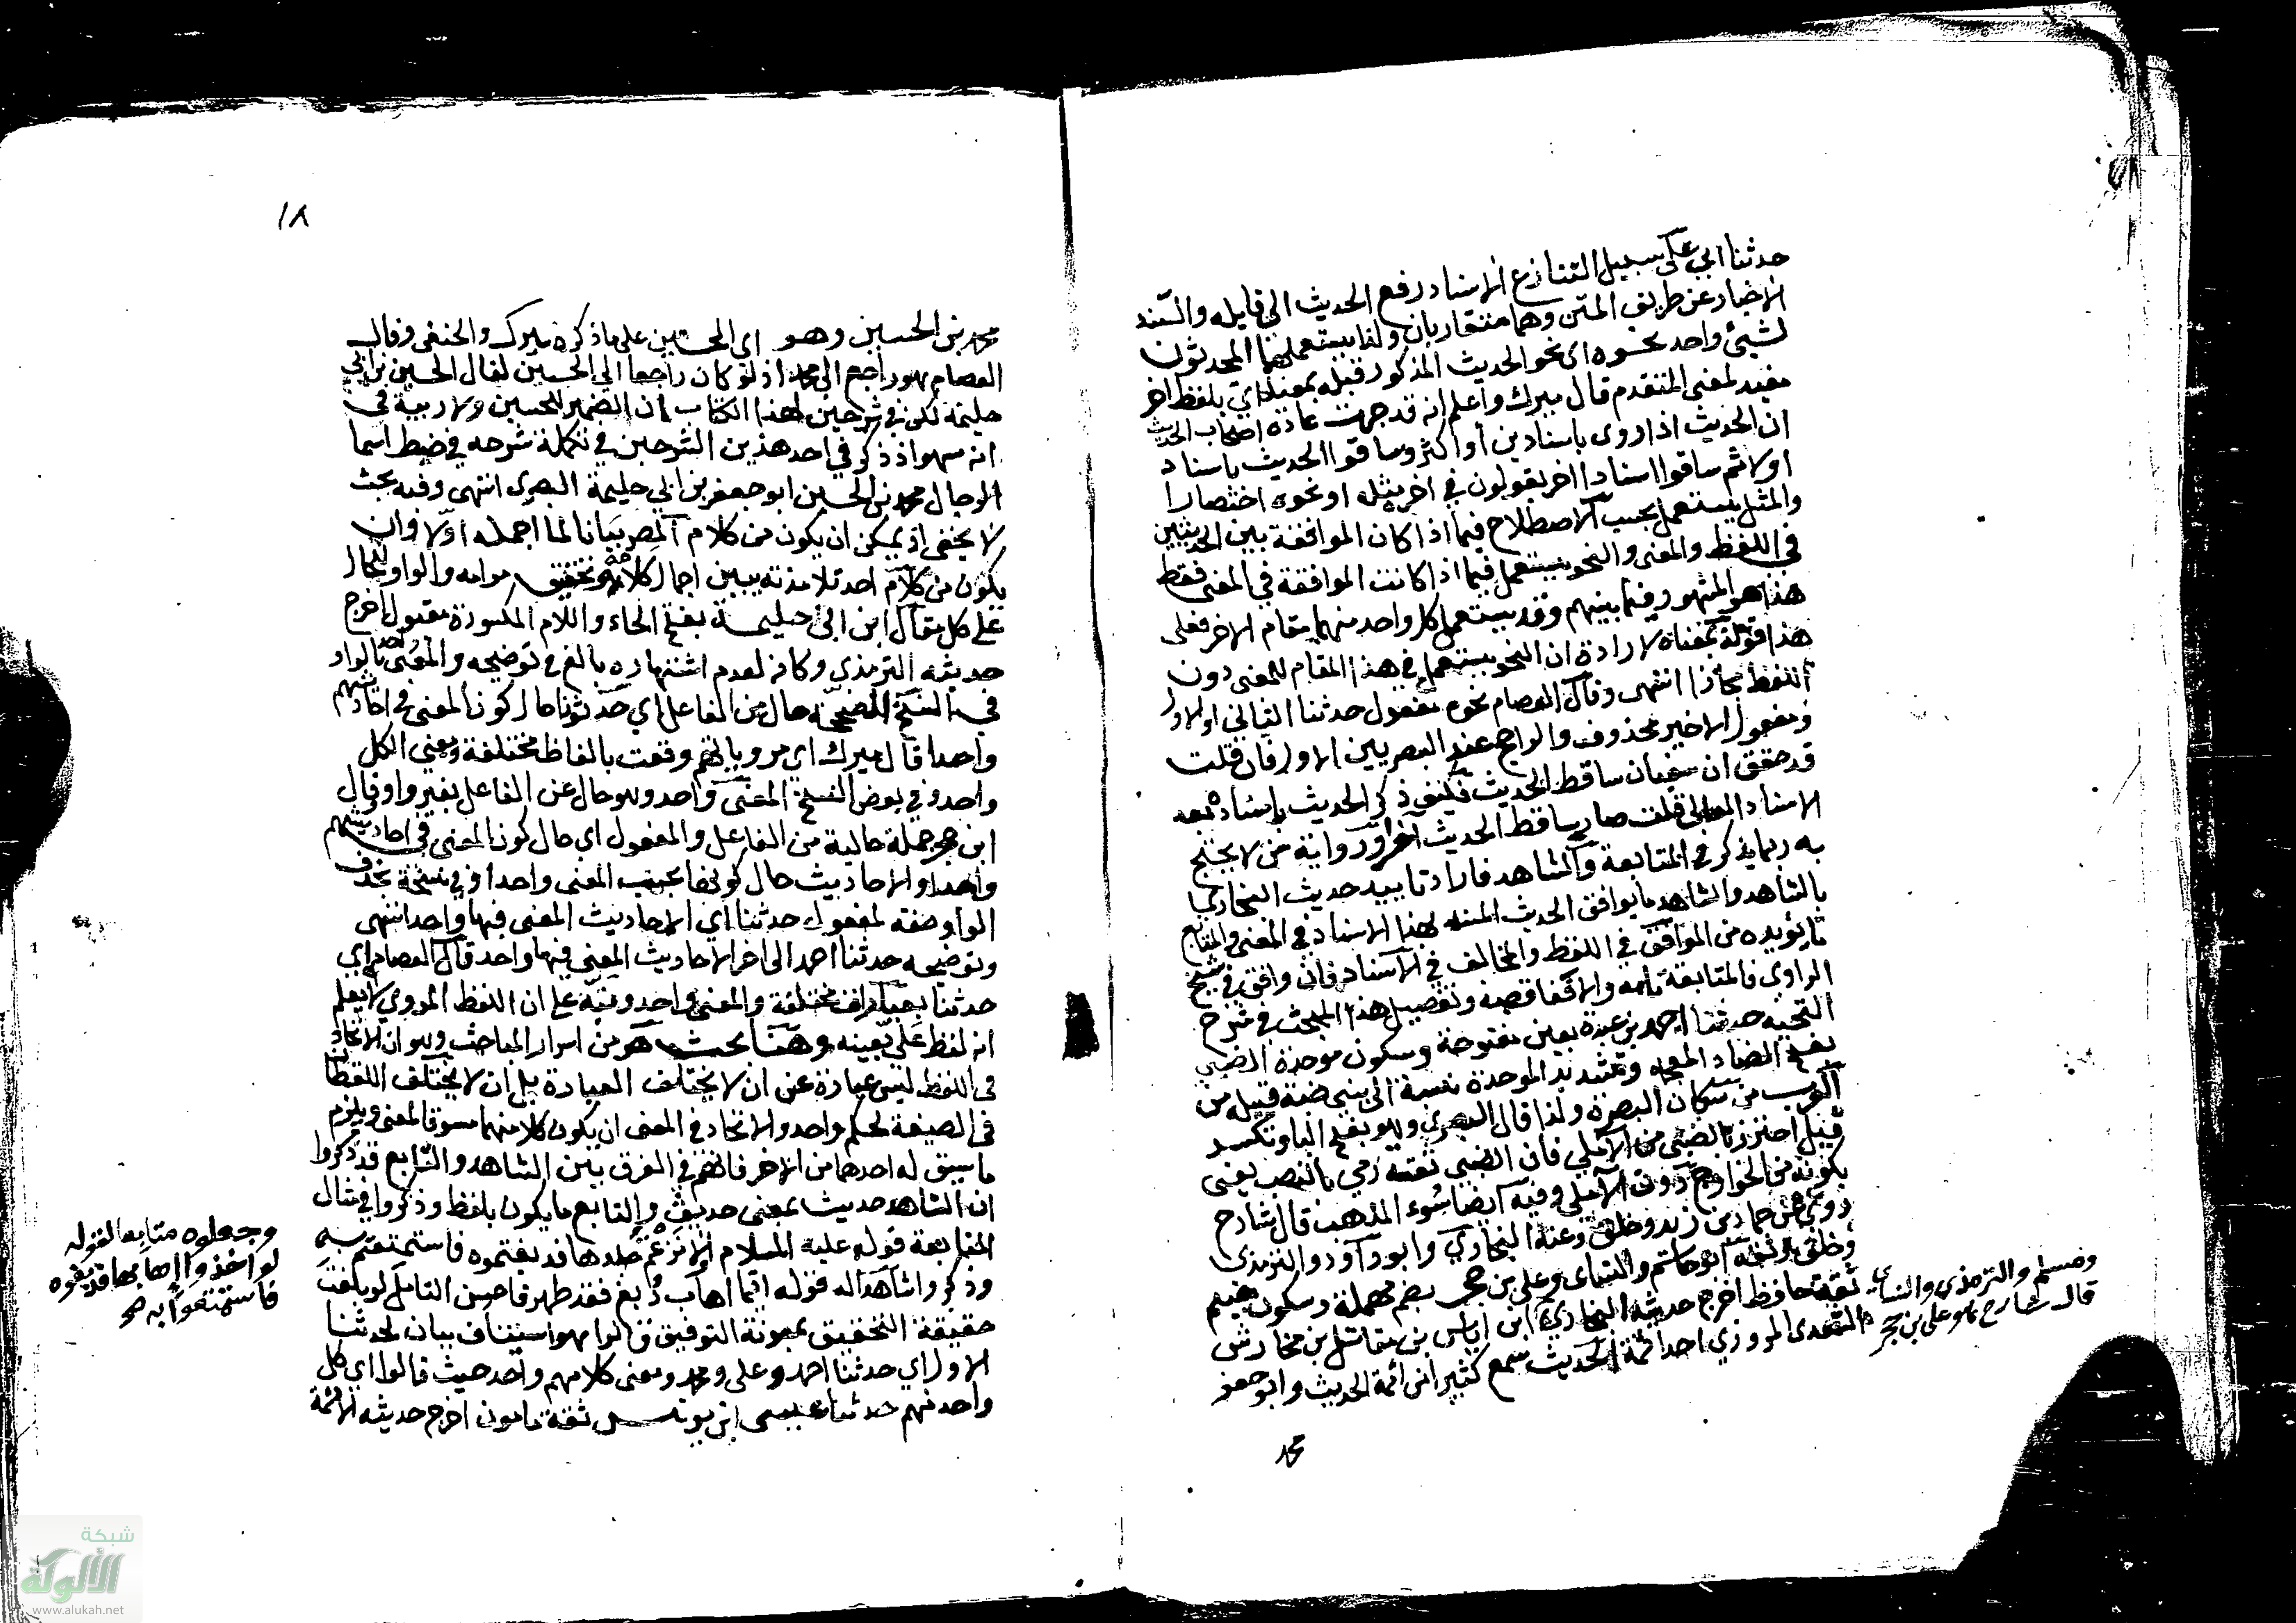 حدثنا ابي على سبيل التنازع الاسناد رفع الحديث الى قايله والسند
الاخبار عن طريق المتن وهما متقاربان ولذا يستعملهما المحدثون
لشيئ واحد بنحوه اى نحو الحديث المذكور قبله بمعناه اي بلفظ اخر
مفيد لمعنى المتقدم قال ميرك واعلم انه قد جرت عادة اصحاب الحديث
ان الحديث اذا روى باسنادين أو اكثر وساقوا الحديث باسناد
اولا ثم ساقوا اسنادا اخر يقولون في اخره مثله او نحوه اختصارا
والمثل يستعمل بحسب الاصطلاح فيما اذا كان الموافقة بين الحديثين
فى اللفظ والمعنى والنحو يستعمل فيما اذا كانت الموافقة في المعنى فقط
هذا هو المشهور فيما بينهم وقد يستعمل كل واحد منهما مقام الاخر فعلى
هذا قوله بمعناه لارادة ان النحو يستعمل في هذا المقام للمعنى دون
اللفظ مجازا انتهى وقال العصام نحوه مفعول حدثنا الثاني او الاول
ومفعول الاخير محذوف والراجح عند البصريين الاول فان قلت
قد حقق ان سفيان ساقط الحديث فكيف ذكر الحديث باسناده بعد
الاسناد العالى قلت صار ساقط الحديث آخرا ورواية من لا يحتج
به ربما يذكر في المتابعة والشاهد فاراد تاييد حديث البخاري
بالشاهد والشاهد ما يوافق الحديث المسند لهذا الاسناد في المعنى والمتابع
ما يؤيده من الموافق في اللفظ والمخالف في الاسناد فان وافق في شيخ
الراوى فالمتابعة تامه والا فناقصة وتفصيل هذا المبحث في شرح
النخبه حدثنا احمد بن عبدة بعين مفتوحة وسكون موحدة الضبي
بفتح الضاد المعجمه وتشديد الموحدة نسبة الى بني ضبة قبيله من
العرب من سكان البصرة ولذا قال البصري وهو بفتح البا وتكسر
قيل احترز بالضبي من الآملي فان الضبي ثقة رمي بالنصب يعنى
بكونه من الخوارج دون الآملي وفيه ايضا سوء المذهب قال شارح
روى عن حماد بن زيد وخلق وعنه البخاري وابو داود والترمذى
وخلق وثقه ابو حاتم والنساى وعلي بن حجر بضم مهملة وسكون جيم
ثقة حافظ اخرج حديثه البخاري ابن اياس بن مقاتل بن مخارش
السعدى المروزي احد ائمة الحديث سمع كثيرا من ائمة الحديث وابو جعفر
ومسلم والترمذي والنساي
قال شارح هو علي بن حجر
محمد
١٨
محمد بن الحسين وهو اي الحسين على ما ذكره ميرك والحنفى وقال
العصام هو راجع الى محمد اذ لو كان راجعا الى الحسين لقال الحسين بن ابي
حليمة لكن في شرحين لهذا الكتاب ان الضمير للحسين ولا ريبة في
انه سهو اذ ذكر في احد هذين الشرحين في تكملة شرحه في ضبط اسما
الرجال محمد بن الحسين ابو جعفر بن ابي حليمة البصرى انتهى وفيه بحث
لا يخفى اذ يمكن ان يكون من كلام المصر بيانا لما اجمله اولا وان
يكون من كلام احد تلامذته يبين اجمال كلامه وتحقيق مرامه والواو للحال
على كل مقال ابن ابى حليمة بفتح الحاء واللام المكسورة مقبول اخرج
حديثه الترمذي وكانه لعدم اشتهاره بالغ في توضيحه والمعنى واحد بالواو
في النسخ المصححة حال من الفاعل اي حدثونا حال كون المعنى في احاديثهم
واحدا قال ميرك اي مروياتهم وقعت بالفاظ مختلفة ومعنى الكل
واحد وفي بعض النسخ المعنى واحد وهو حال عن الفاعل بغير واو وقال
ابن حجر جملة حالية من الفاعل والمفعول اي حال كون المعنى في احاديثهم
واحدا والاحاديث حال كونها بحسب المعنى واحدا وفي نسخة بحذف
الواو صفة لمفعول حدثنا اي الاحاديث المعنى فيها واحد انتهى
وتوضيحه حدثنا احمد الى اخر الاحاديث المعنى فيها واحد قال العصام اي
حدثنا بعبارات مختلفة والمعنى واحد ونبه على ان اللفظ المروي لا يعلم
انه لفظ على بعينه وهنا بحث هو من اسرار المباحث وهو ان الاتحاد
فى اللفظ ليس عبارة عن ان لا يختلف العبارة بل ان لا يختلف اللفظان
في الصيغة لحكم واحد والاتحاد في المعنى ان يكون كلا منهما مسوقا لمعنى ويلزم
ما سيق له احدهما من الاخر فانهم في الفرق بين الشاهد والتابع قد ذكروا
ان الشاهد حديث بمعنى حديث والتابع ما يكون بلفظ وذكروا في مثال
المتابعة قوله عليه السلام الا نزعتم جلدها فدبغتموه فاستمتعتم به
وذكروا شاهدا له قوله ايما اهاب دبغ فقد طهر فاحسن التامل لو بلغت
حقيقة التحقيق بمعونة التوفيق قالوا هو استيناف بيان لحدثنا
الاول اي حدثنا احمد وعلى ومحمد ومعنى كلامهم واحد حيث قالوا اي كل
واحد منهم حدثنا عيسى ابن يونس ثقة مامون اخرج حديثه الائمة
وجعلوه متابعا لقوله
لو اخذوا اهابها فدبغوه
فاستمتعوا به صح
شبكة
الألوكة
www.alukah.net